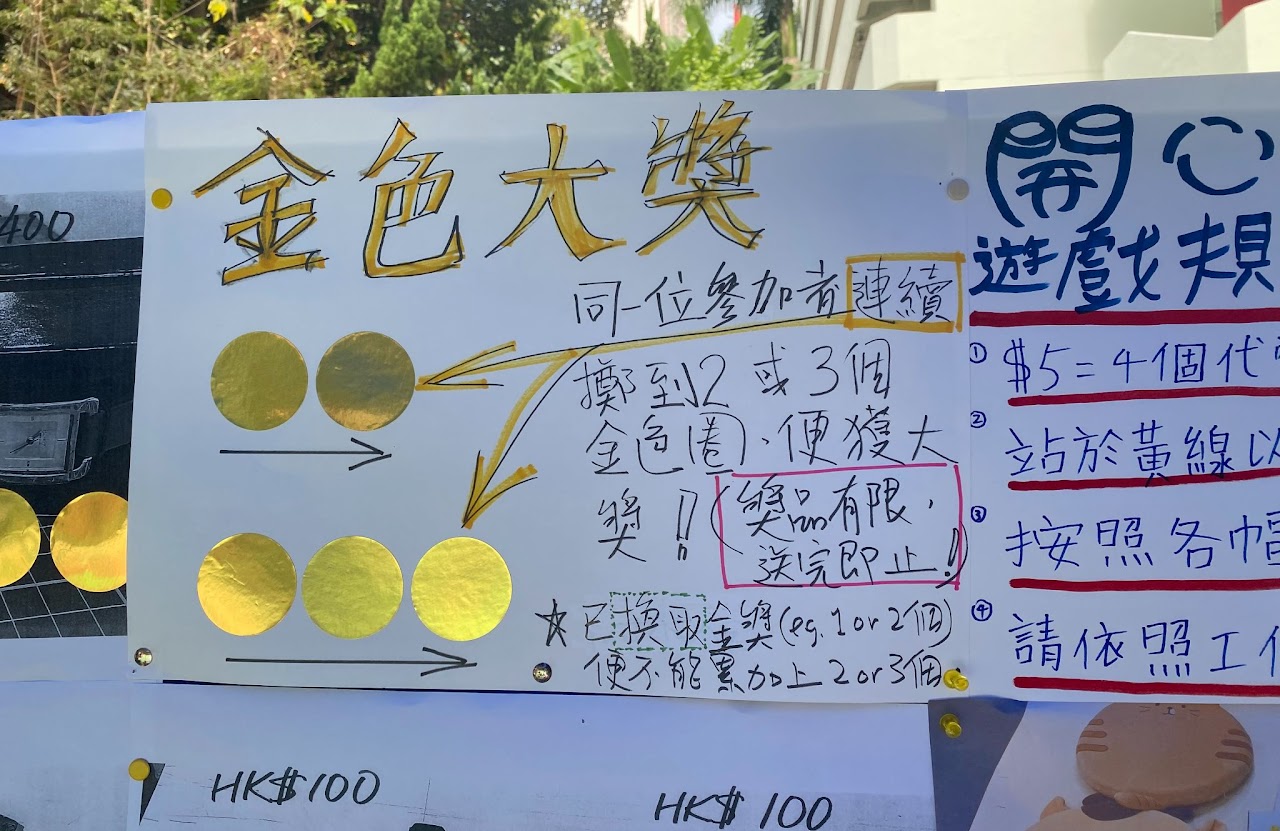 400
金色大獎
同一位參加者連續
擲到2或3個
金色圈,便獲大
獎!!(獎品有限,
送完即止!)
☆已換取金獎(eg. 1 or 2個)
便不能累加上2 or 3個
開心
遊戲規
① $5=4個代
② 站於黃線以
③ 按照各幅
④ 請依照工作
HK$100
HK$100